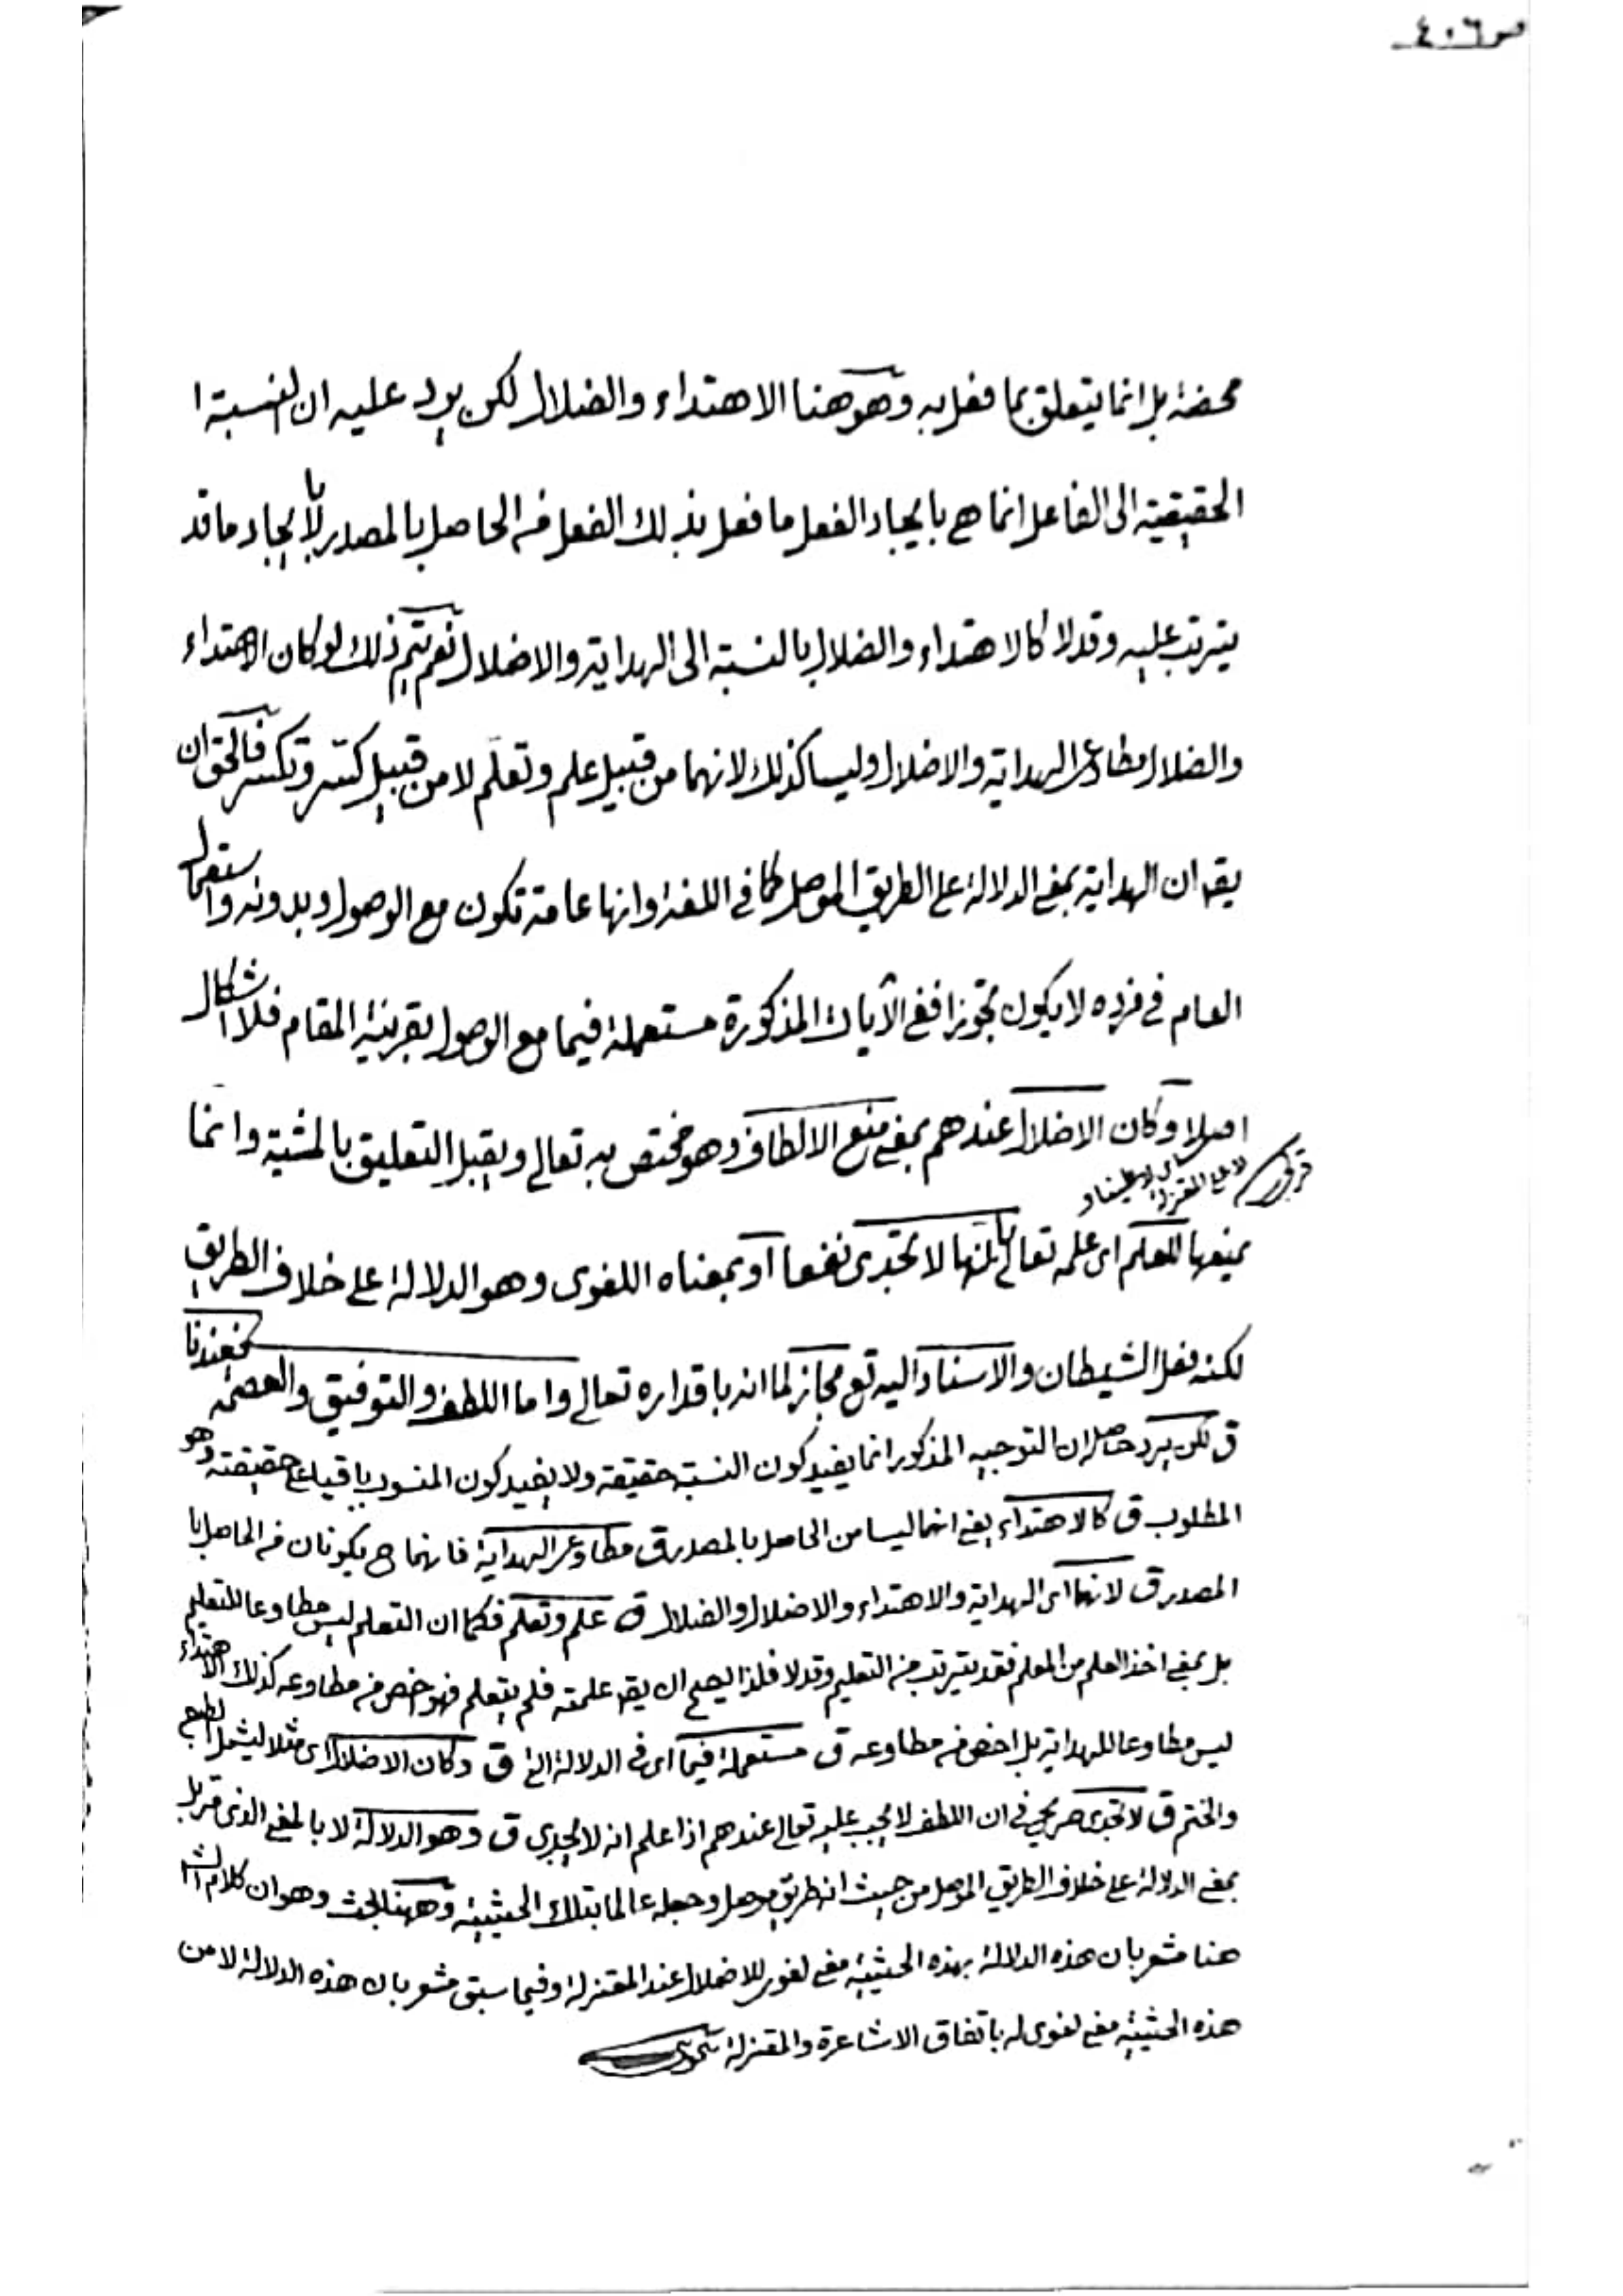 ص ٤٠٦
محضة بل انما يتعلق بما فعل به وهو هنا الاهتداء والضلال لكن يرد عليه ان النسبة
الحقيقية الى الفاعل انما هي بايجاد الفعل ما فعل بذلك الفعل من الحاصل بالمصدر لا بايجاد ما قد
يترتب عليه وقد لا كالاهتداء والضلال بالنسبة الى الهداية والاضلال نعم يتم ذلك لو كان الاهتداء
والضلال مطاوعى الهداية والاضلال وليسا كذلك لانهما من قبيل علم وتعلم لا من قبيل كسر وتكسر فالحق ان
يقه ان الهداية بمعنى الدلالة على الطريق الموصل كما في اللغة وانها عامة تكون مع الوصول وبدونه واستعمال
العام في فرده لا يكون تجوزا ففي الآيات المذكورة مستعملة فيما مع الوصول بقرينة المقام فلا اشكال
اصلا وكان الاضلال عندهم بمعنى منع الالطاف وهو مختص به تعالى ويقبل التعليق بالمشية وانما
يمنعها للعلم اى علمه تعالى بانها لا تجدى نفعا او بمعناه اللغوى وهو الدلالة على خلاف الطريق
لكنه فعل الشيطان والاسناد اليه تع مجاز لما انه باقداره تعالى واما اللطف والتوفيق والعصمة فعندنا
ق لكن يرد حاصله ان التوجيه المذكور انما يفيد كون النسبة حقيقة ولا يفيد كون المنسوب باقيا على حقيقته وهو
المطلوب ق كالاهتداء يعنى انهما ليسا من الحاصل بالمصدر ق مطاوعى الهداية فانهما ح يكونان من الحاصل با
المصدر ق لانهما اى الهداية والاهتداء والاضلال والضلال ق علم وتعلم فكما ان التعلم ليس مطاوعا للتعليم
بل بمعنى اخذ العلم من المعلم فقد يترتب من التعليم وقد لا فلذا يصح ان يقه علمته فلم يتعلم فهو اخص من مطاوعه كذلك الاهتداء
ليس مطاوعا للهداية بل اخص من مطاوعه ق مستعملة فيما اى في الدلالة التى ق وكان الاضلال اى مثلا ليشمل الطبع
والختم ق لا تجدى صريح في ان اللطف لا يجب عليه تعالى عندهم اذا علم انه لا يجدى ق وهو الدلالة لا بالمعنى الذى مر بل
بمعنى الدلالة على خلاف الطريق الموصل من حيث انه طريق موصل وجعله عالما بتلك الحيثية وههنا بحث وهو ان كلام الش
هنا مشعر بان هذه الدلالة بهذه الحيثية معنى لغوى للاضلال عند المعتزلة وفيما سبق مشعر بان هذه الدلالة لا من
هذه الحيثية معنى لغوى له باتفاق الاشاعرة والمعتزلة